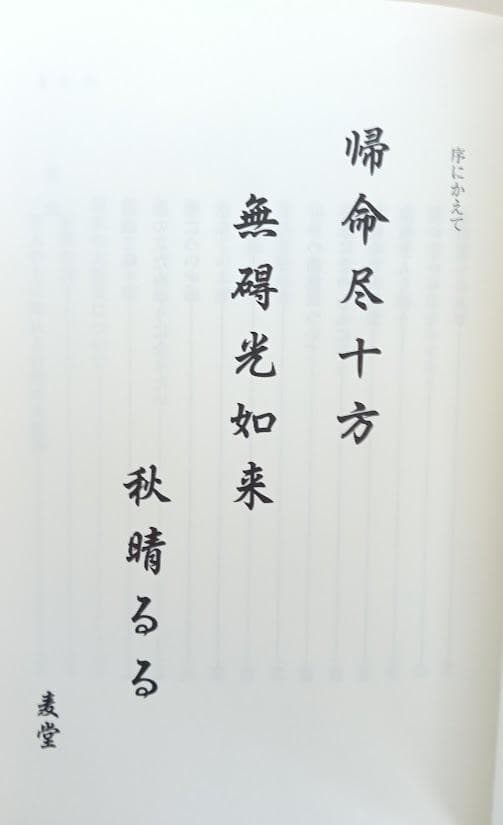 序にかえて
帰命尽十方
無碍光如来
秋晴るる
麦堂